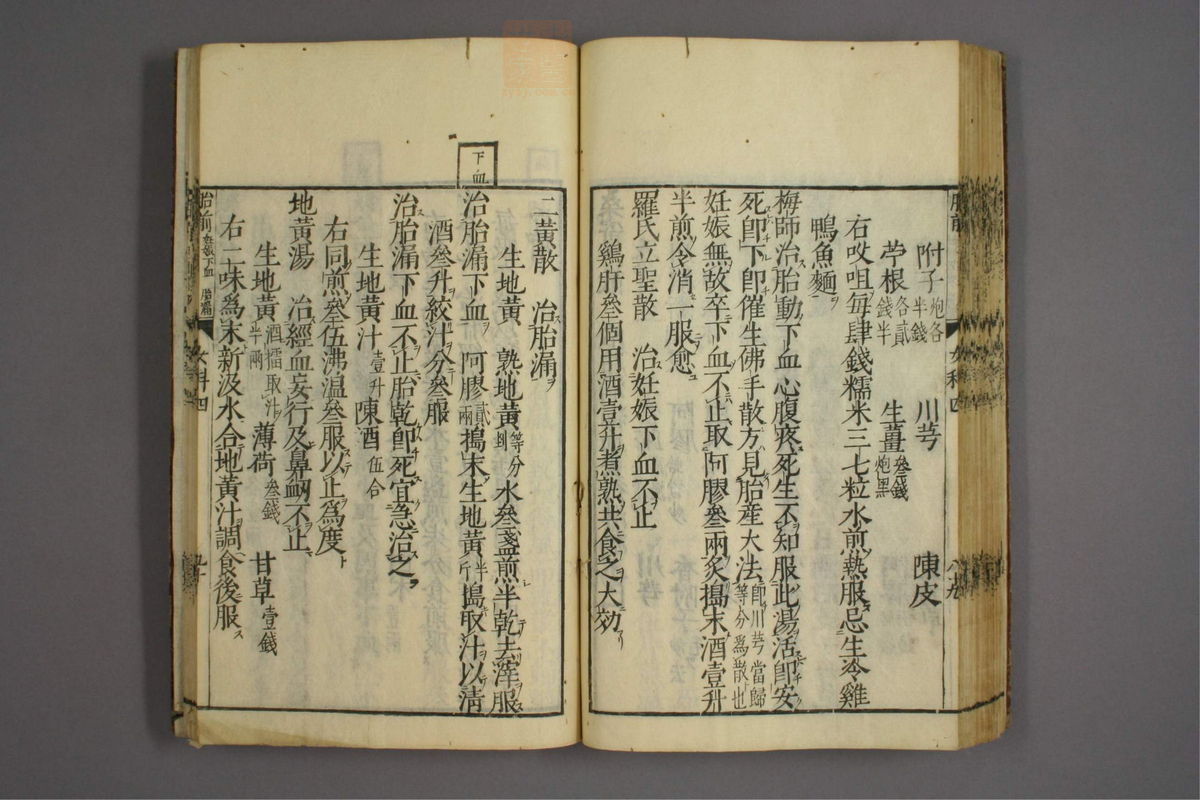 附子炮各半錢 川芎 陳皮
苧根各貳錢半 生薑叄錢炮黑
右㕮咀毎肆錢糯米三七粒水煎熱服忌生冷雞
鴨魚麵
梅師治胎動下血心腹疼死生不知服此湯活卽安
死卽下卽催生佛手散方見胎産大法卽川芎當歸等分爲散也
妊娠無故卒下血不止取阿膠叄兩炙搗末酒壹升
半煎令消一服愈
羅氏立聖散 治妊娠下血不止
鷄肝叄個用酒壹升煮熟共食之大効
二黃散 治胎漏
生地黃 熟地黃等分 水叄盞煎半乾去滓服
下血
治胎漏下血 阿膠貳兩搗末生地黃半斤搗取汁以淸
酒叄升絞汁分叄服
治胎漏下血不止胎乾卽死宜急治之
生地黃汁壹升 陳酒伍合
右同煎叄伍沸溫叄服以止爲度
地黃湯 治經血妄行及鼻衄不止
生地黃酒擂取汁半兩 薄荷叄錢 甘草壹錢
右二味爲末新汲水合地黃汁調食後服
胎前 下血 女科四